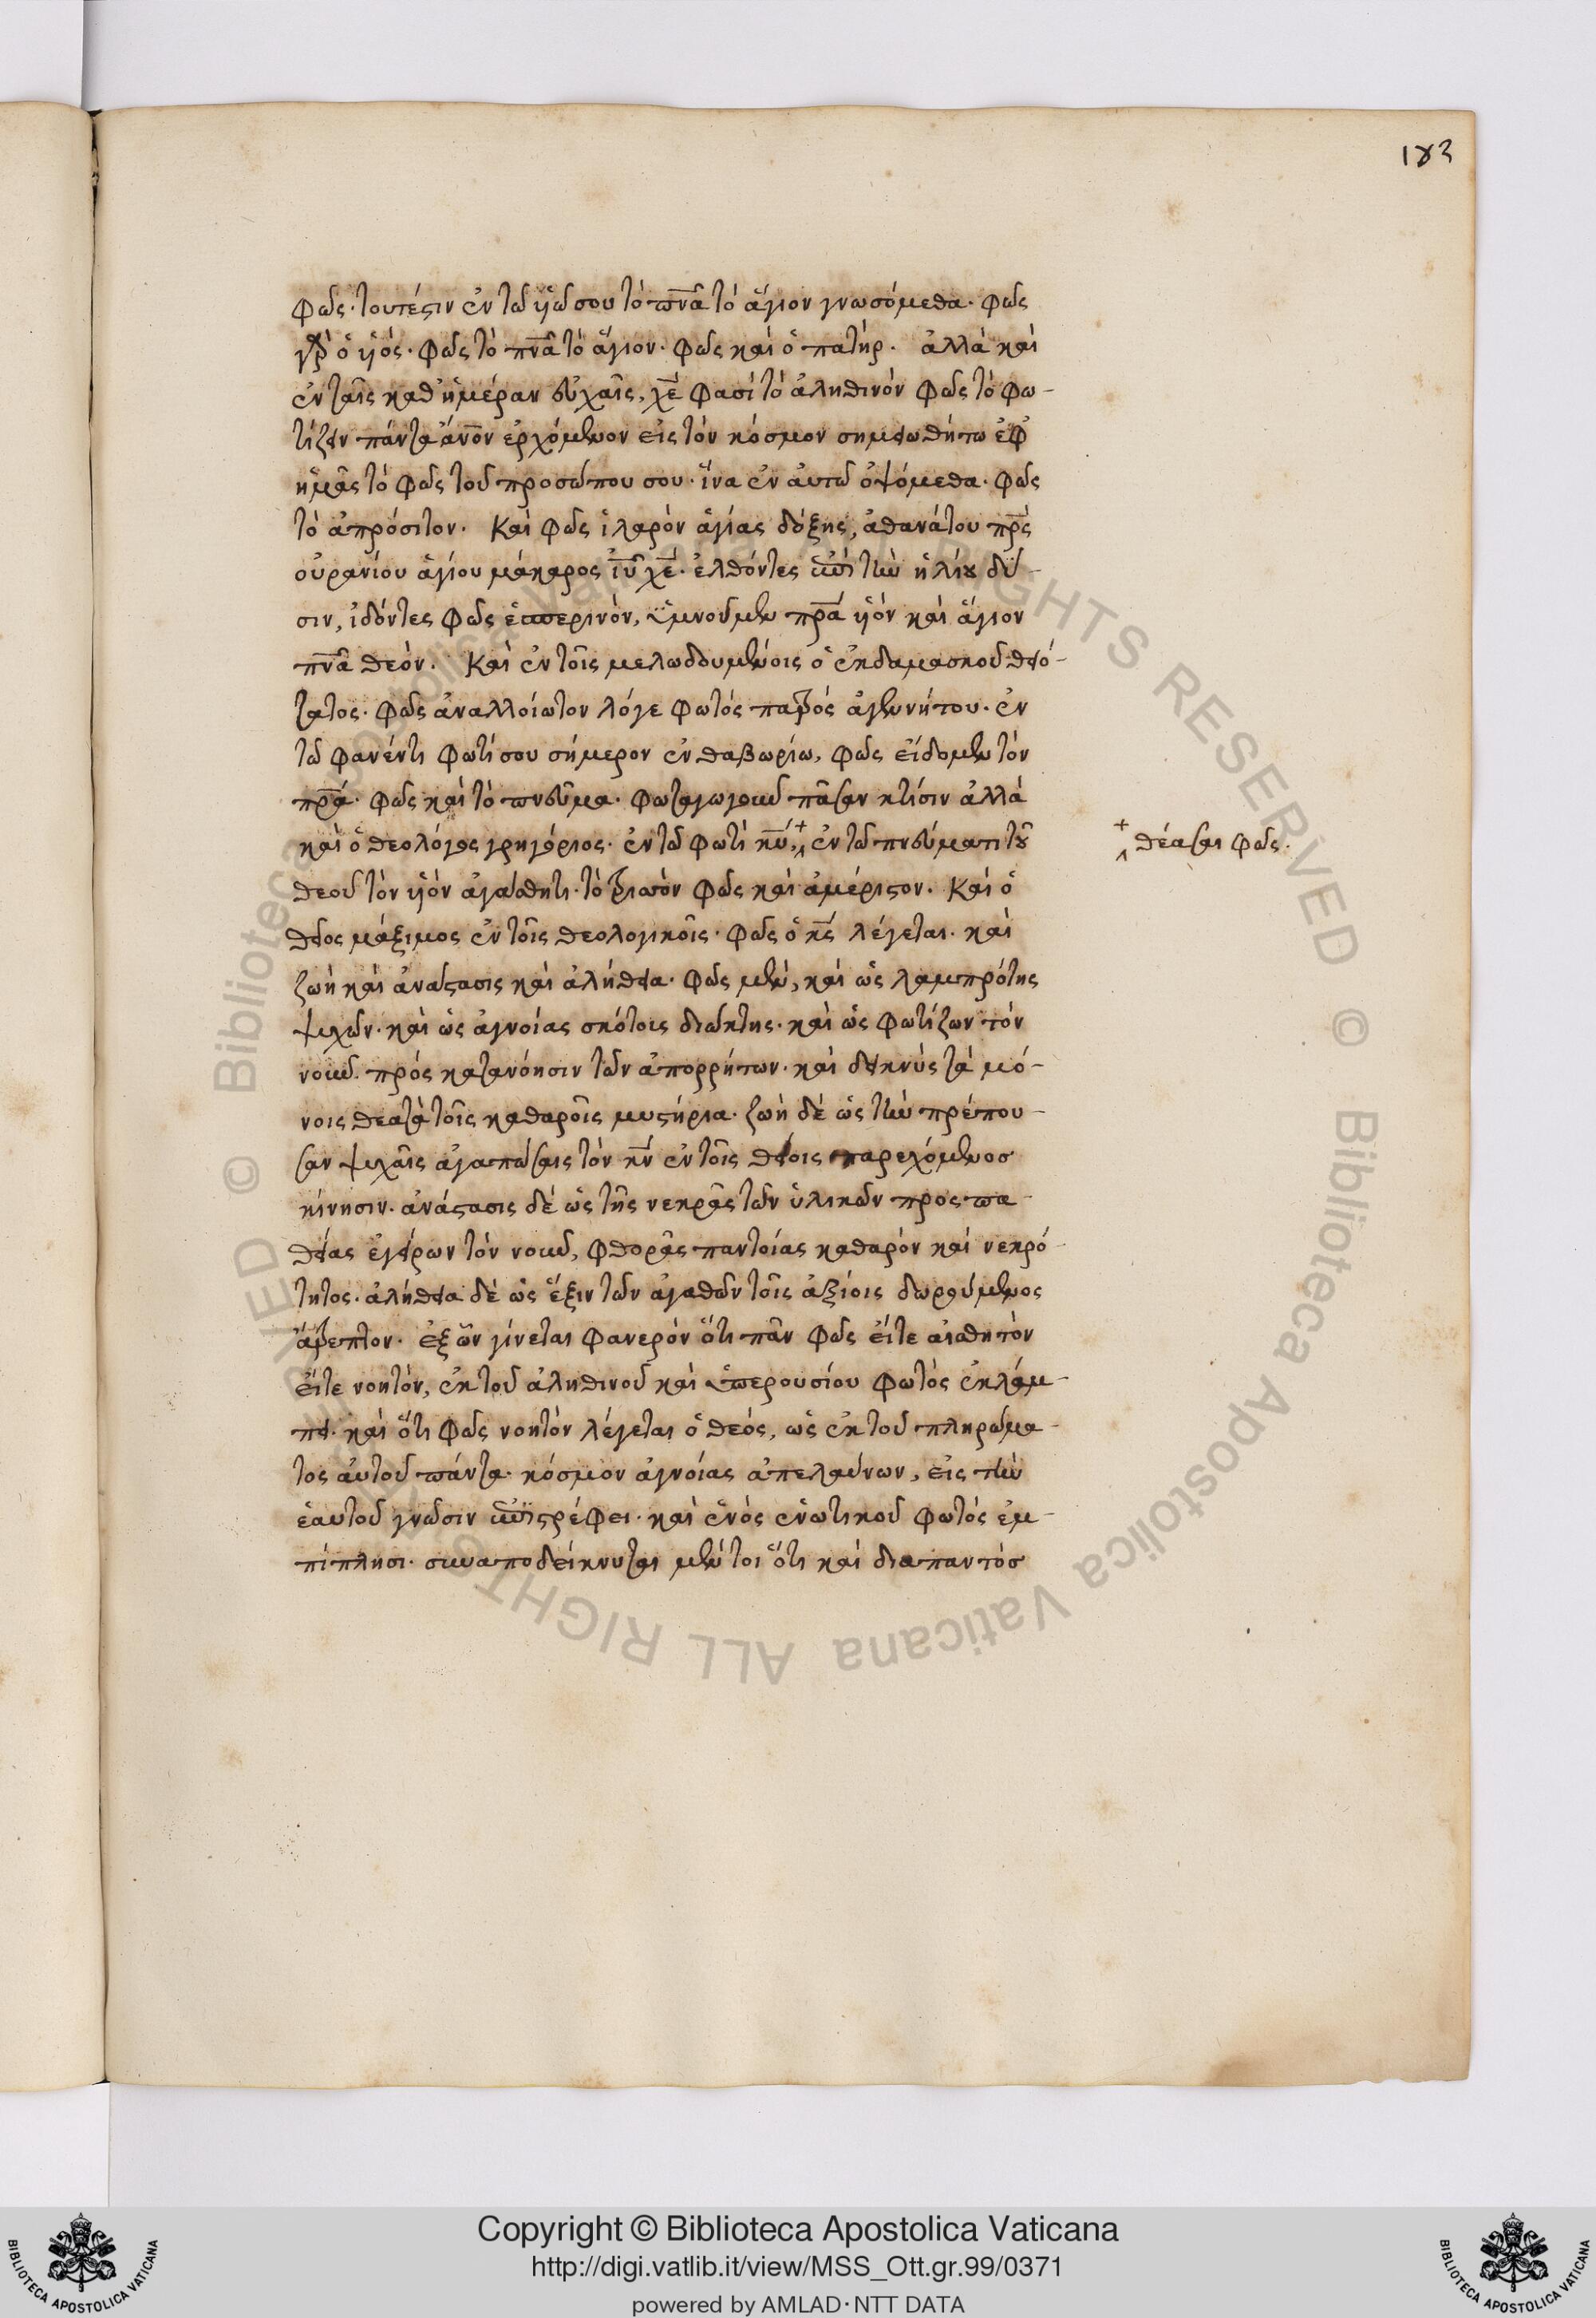 183
φῶς· τουτέστιν ἐν τῶ υἱῶ σου τὸ πνᾶ τὸ ἅγιον γνωσόμεθα· φῶς
γὰρ ὁ υἱός· φῶς τὸ πνᾶ τὸ ἅγιον· φῶς καὶ ὁ πατήρ. ἀλλὰ καὶ
ἐν ταῖς καθ ἡμέραν εὐχαῖς, χὲ φασὶ τὸ ἀληθινὸν φῶς τὸ φω-
τίζειν πάντα ἄνον ἐρχόμενον εἰς τὸν κόσμον σημειωθήτω ἐφ
ἡμᾶς τὸ φῶς τοῦ προσώπου σου· ἵνα ἐν ἀυτῶ ὀψόμεθα· φῶς
τὸ ἀπρόσιτον. Καὶ φῶς ἱλαρὸν ἁγίας δόξης, ἀθανάτου πρς
οὐρανίου ἁγίου μάκαρος ἰῦ χὲ· ἐλθόντες ἐπὶ τὴν ἡλίου δύ-
σιν, ἰδόντες φῶς ἑσπερινὸν, ὑμνοῦμεν πρα υἱὸν καὶ ἅγιον
πνᾶ θεόν. Καὶ ἐν τοῖς μελωδουμένοις ὁ ἐκ δαμασκοῦ θειό-
τατος· φῶς ἀναλλοίωτον λόγε φωτὸς πατρὸς ἀγεννήτου· ἐν
τῶ φανέντι φωτί σου σήμερον ἐν θαβωρίω, φῶς εἴδομεν τὸν
πρα· φῶς καὶ τὸ πνεῦμα· φωταγωγοῦν πᾶσαν κτίσιν ἀλλὰ
καὶ ὁ θεολόγος γρηγόριος· ἐν τῶ φωτὶ κῦ, + ἐν τῶ πνεύματι τοῦ
+ θέασαι φῶς.
θεοῦ τὸν υἱὸν ἀγάσθητι· τὸ τρισσὸν φῶς καὶ ἀμέριστον. Καὶ ὁ
θεῖος μάξιμος ἐν τοῖς θεολογικοῖς· φῶς ὁ κς λέγεται· καὶ
ζωὴ καὶ ἀναστασις καὶ ἀλήθεια· φῶς μὲν, καὶ ὡς λαμπρότης
ψυχῶν· καὶ ὡς ἀγνοίας σκότοις διώκτης· καὶ ὡς φωτίζων τὸν
νοῦν πρὸς κατανόησιν τῶν ἀπορρήτων· καὶ δεικνὺς τὰ μό-
νοις θεατὰ τοῖς καθαροῖς μυστήρια· ζωὴ δὲ ὡς τὴν πρέπου-
σαν ψυχαῖς ἀγαπώσαις τὸν κν ἐν τοῖς θείοις παρεχόμενος
κίνησιν· ἀνάστασις δὲ ὡς τῆς νεκρᾶς τῶν ὑλικῶν προσπα-
θείας ἐγείρων τὸν νοῦν, φθορᾶς παντοίας καθαρὸν καὶ νεκρό-
τητος· ἀλήθεια δὲ ὡς ἕξιν τῶν ἀγαθῶν τοῖς ἀξίοις δωρούμενος
ἄτρεπτον· ἐξ ὧν γίνεται φανερὸν ὅτι πᾶν φῶς εἴτε αἰσθητὸν
εἴτε νοητὸν, ἐκ τοῦ ἀληθινοῦ καὶ ὑπερουσίου φωτὸς ἐκλάμ-
πει· καὶ ὅτι φῶς νοητὸν λέγεται ὁ θεός, ὡς ἐκ τοῦ πληρώμα-
τος ἀυτοῦ πάντα· κόσμον ἀγνοίας ἀπελαύνων, εἰς τὴν
ἑαυτοῦ γνῶσιν ἐπιστρέφει· καὶ ἑνὸς ἑνωτικοῦ φωτὸς ἐμ-
πίπλησι· συναποδείκνυται μέν τοι ὅτι καὶ διαπαντὸς
Copyright © Biblioteca Apostolica Vaticana
http://digi.vatlib.it/view/MSS_Ott.gr.99/0371
powered by AMLAD·NTT DATA